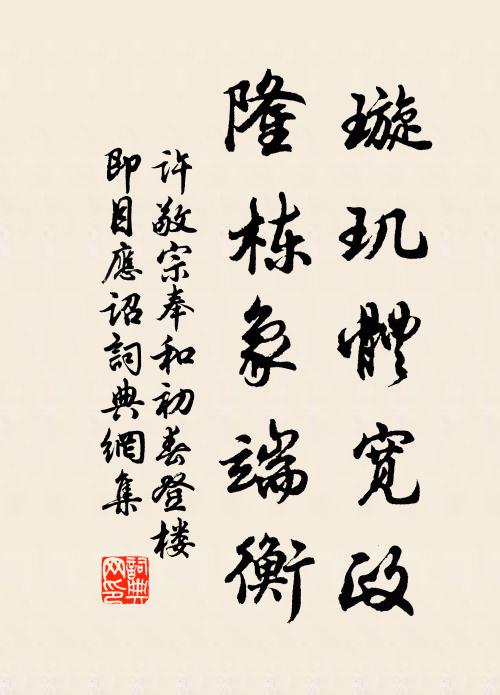 璇玑體寬政
隆栋象端衡
许敬宗奉和初春登楼
即目應诏詞典網集
詞典网印